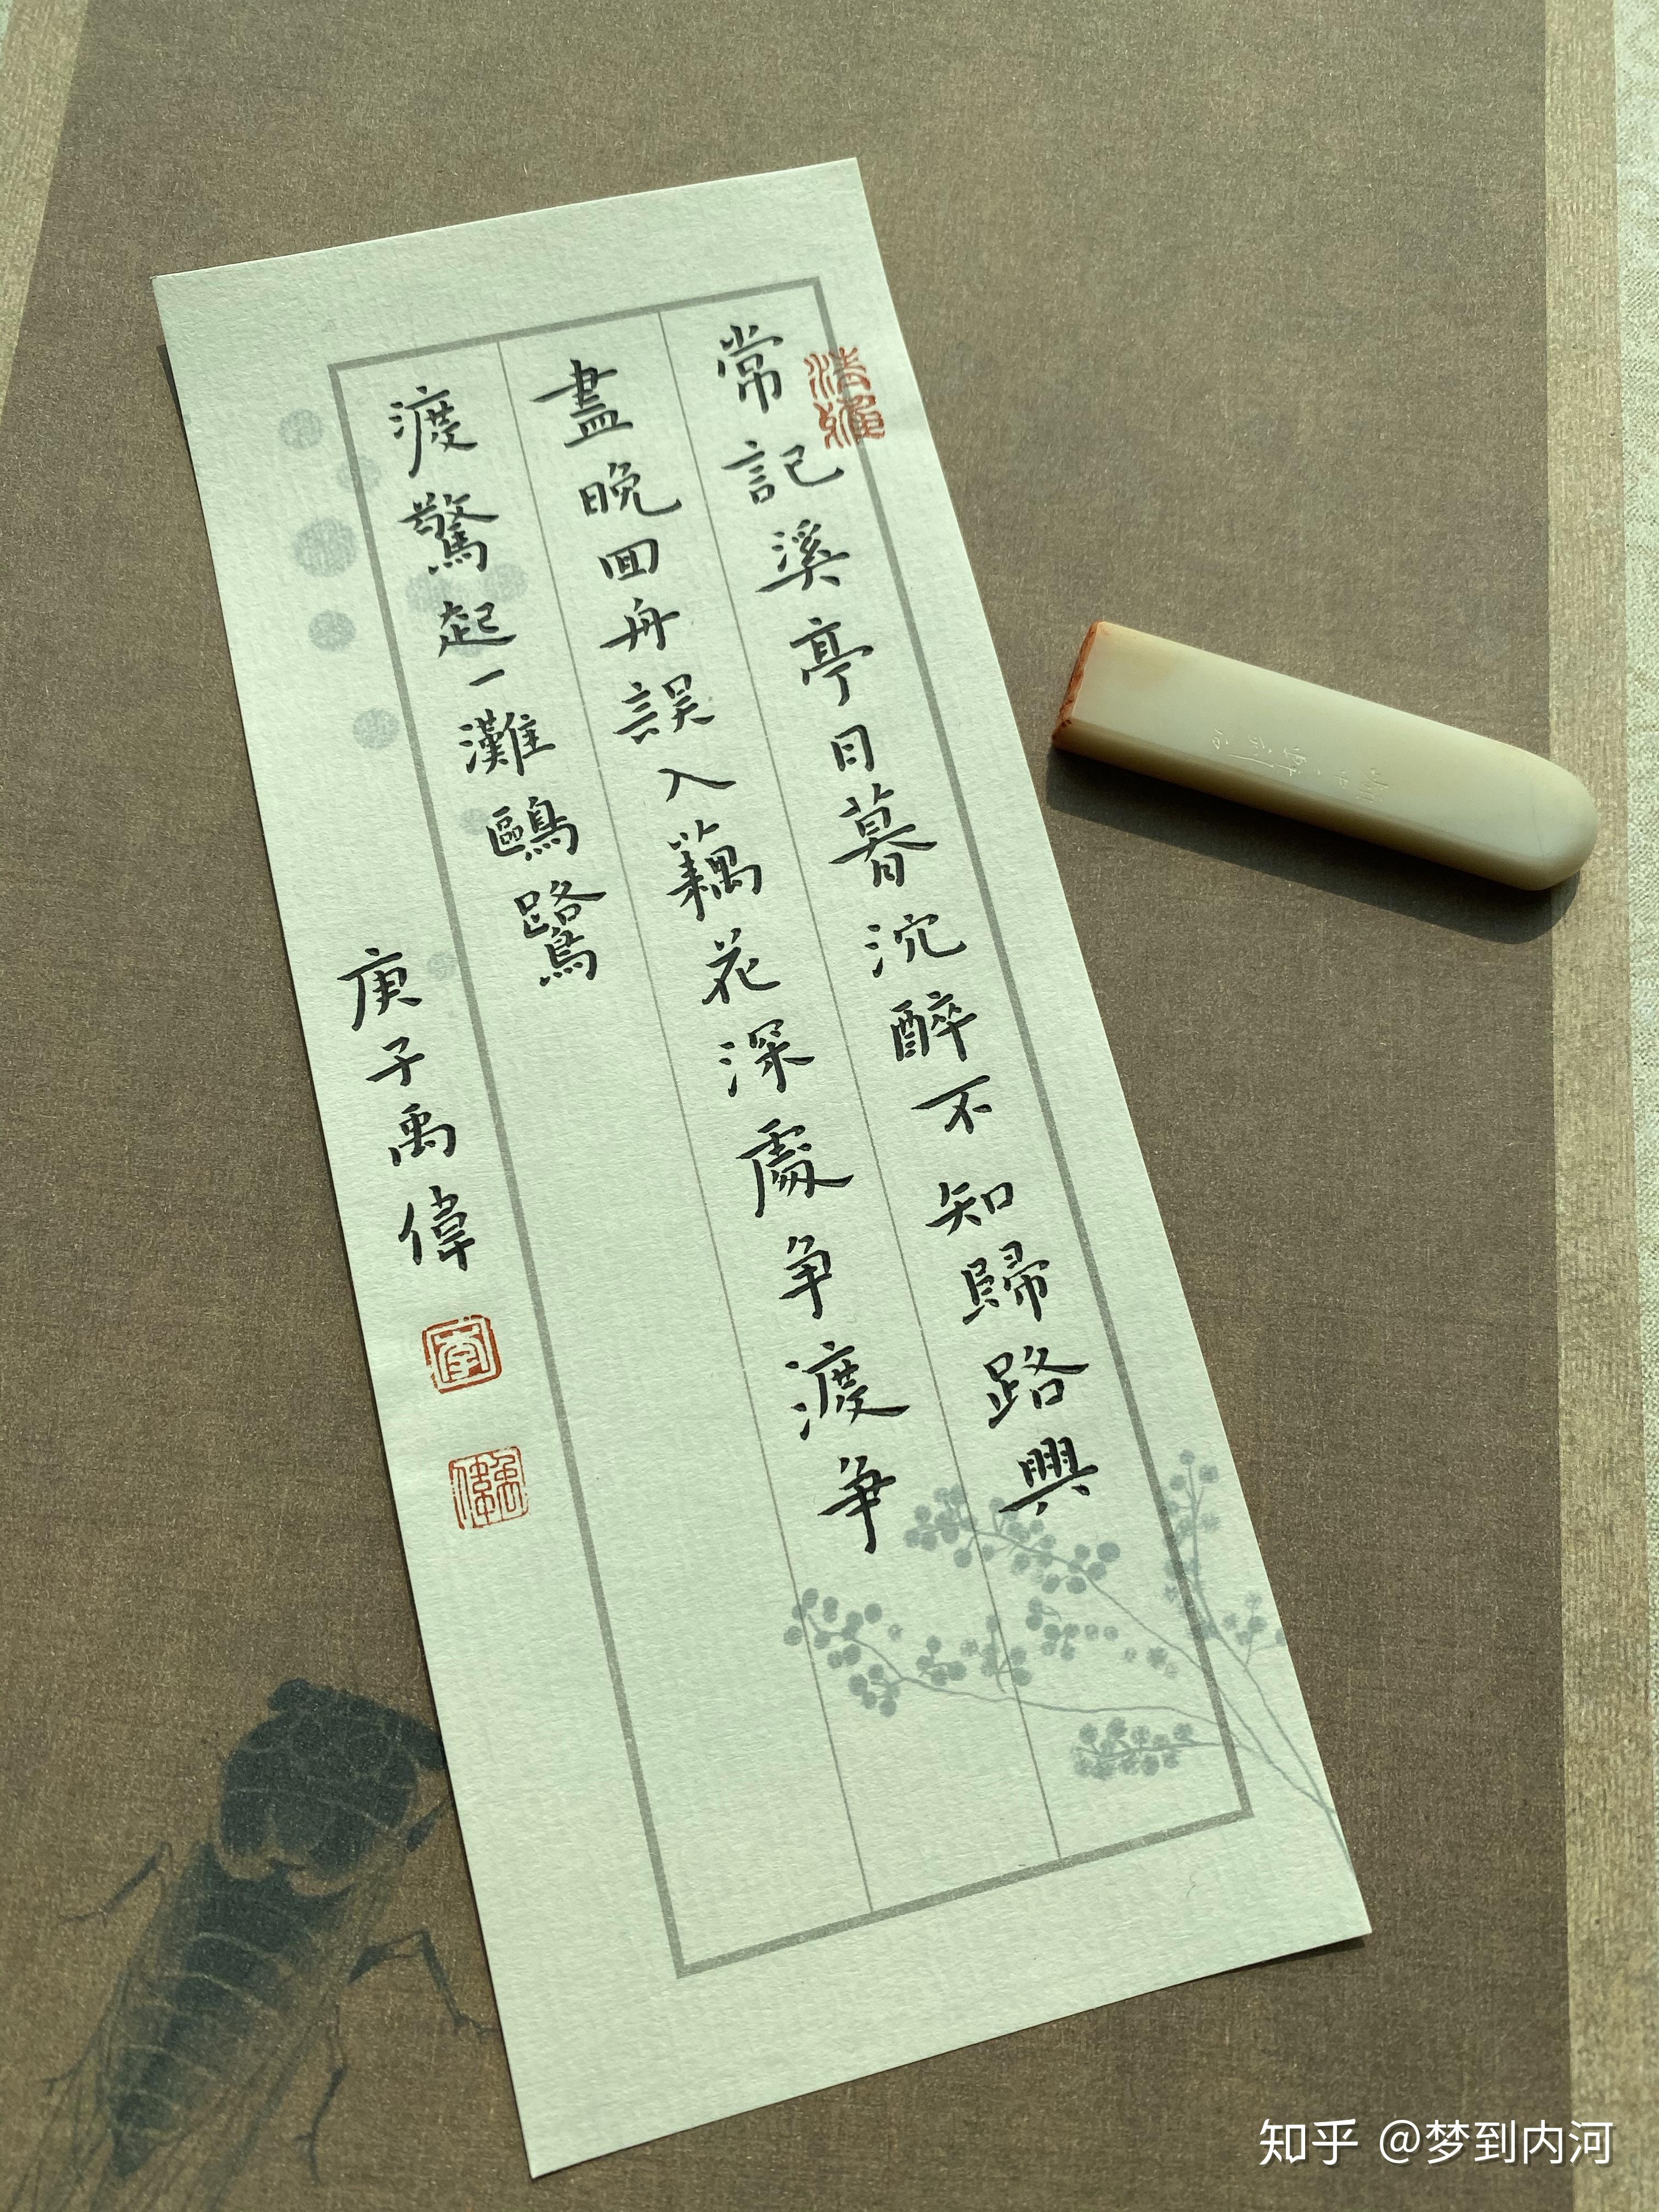 常記溪亭日暮沉醉不知歸路興
盡晚回舟誤入藕花深處爭渡爭
渡驚起一灘鷗鷺
庚子禹偉
知乎 @梦到内河